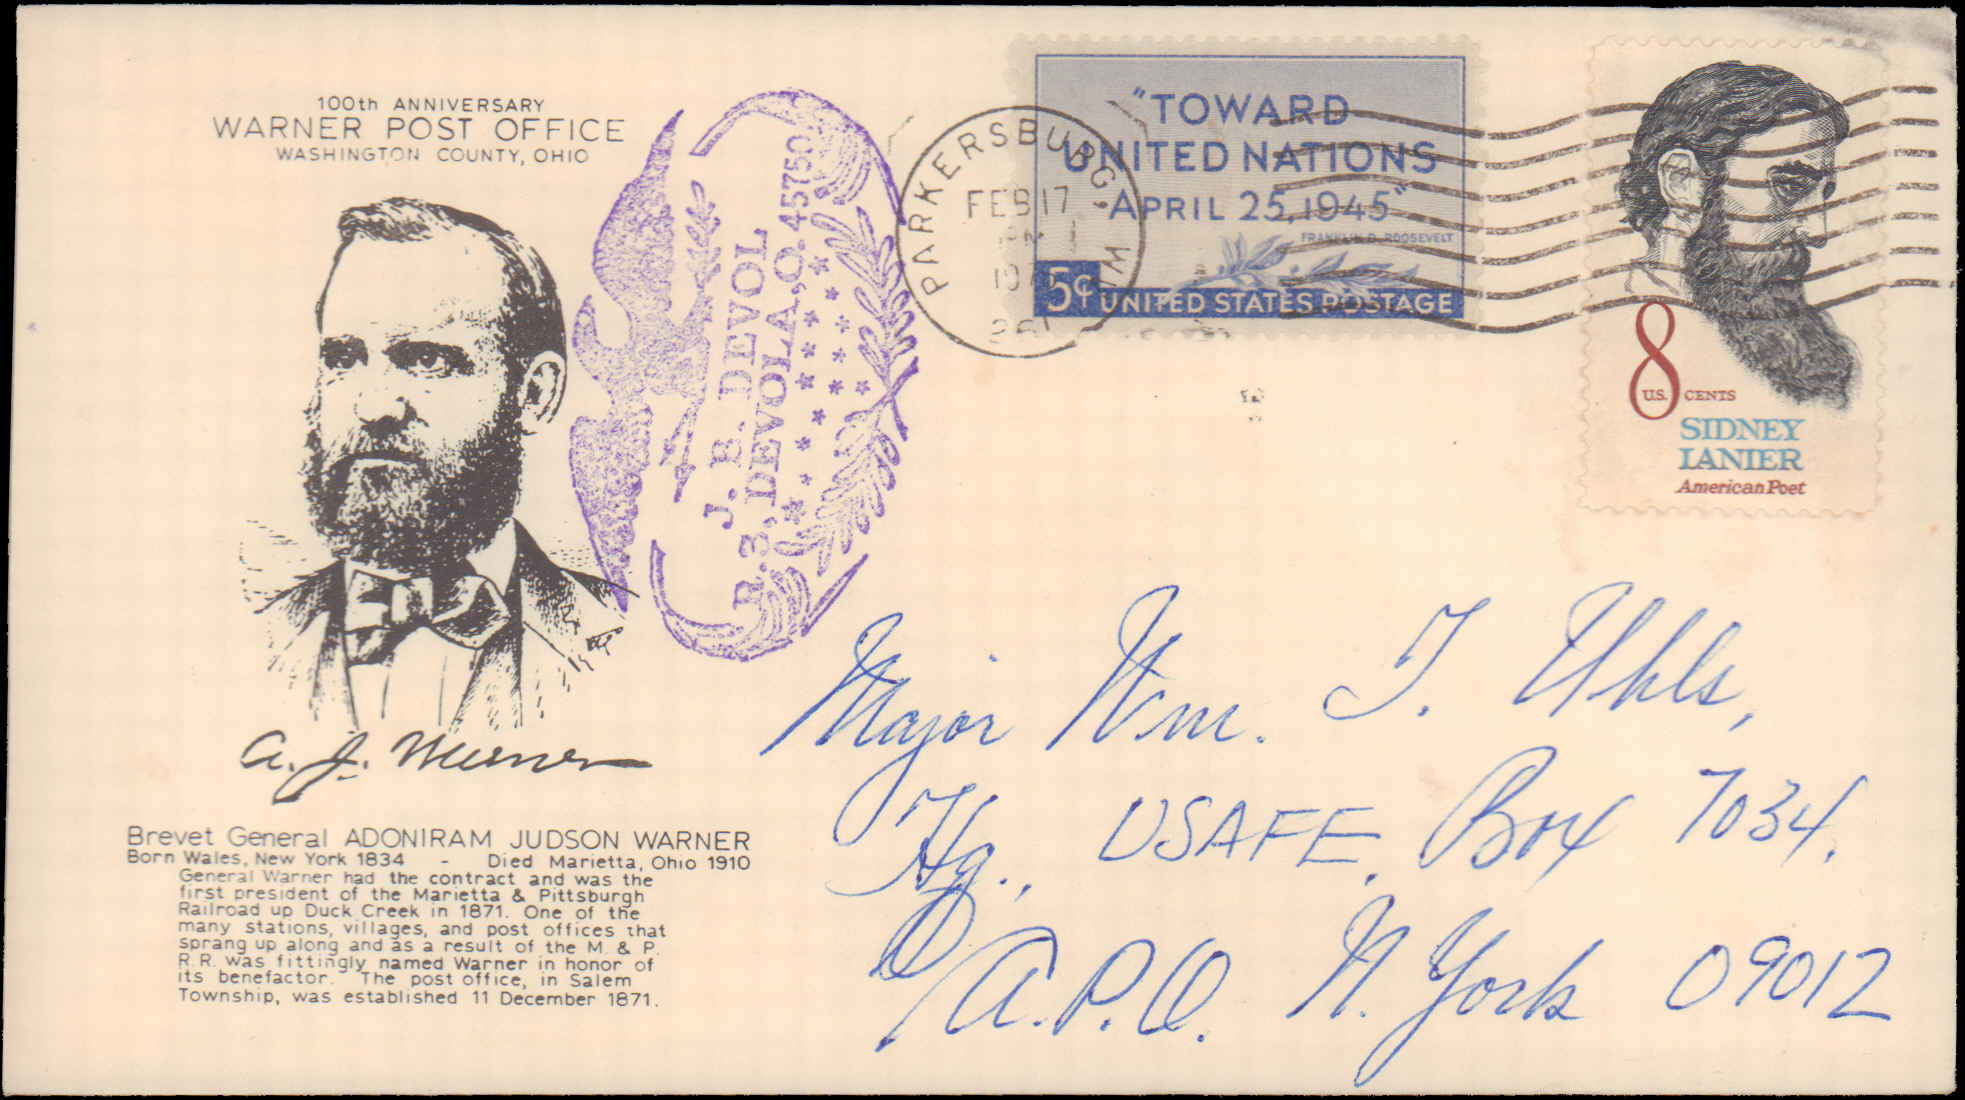 100th ANNIVERSARY
WARNER POST OFFICE
WASHINGTON COUNTY, OHIO
A. J. Warner
Brevet General ADONIRAM JUDSON WARNER
Born Wales, New York 1834 - Died Marietta, Ohio 1910
General Warner had the contract and was the
first president of the Marietta & Pittsburgh
Railroad up Duck Creek in 1871. One of the
many stations, villages, and post offices that
sprang up along and as a result of the M. & P.
R.R. was fittingly named Warner in honor of
its benefactor. The post office, in Salem
Township, was established 11 December 1871.
J. E. DEVOL
R. 3, DEVOLA, O. 45750
PARKERSBURG, WV
FEB 17
PM
"TOWARD
UNITED NATIONS
APRIL 25, 1945"
FRANKLIN D. ROOSEVELT
5¢ UNITED STATES POSTAGE
8
U.S. CENTS
SIDNEY
LANIER
American Poet
Major Wm. T. Uhls,
Hq., USAFE, Box 7034,
A.P.O. N. York 09012